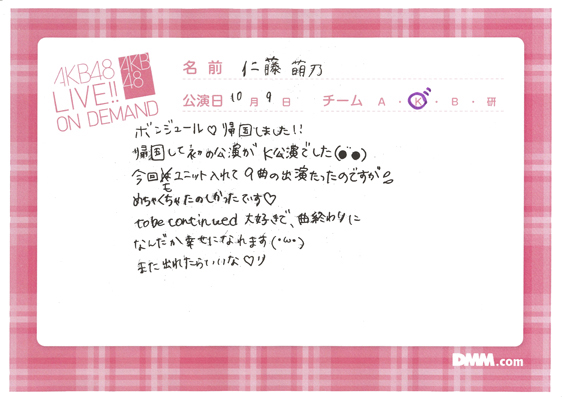 AKB48
LIVE!!
ON DEMAND
AKB
48
名前 仁藤萌乃
公演日 10月9日 チーム A・K・B・研
ボンジュール♡帰国しました!!
帰国して初の公演がK公演でした(●¨●)
今回もユニット入れて9曲の出演だったのですが
めちゃくちゃたのしかったです♡
to be continued 大好きで、曲終わりに
なんだか幸せになれます(・ω・)
また出れたらいいな♡
DMM.com